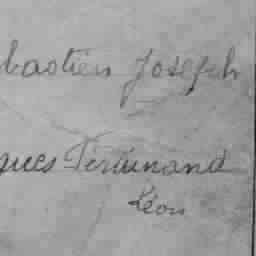 bastien Joseph
ques Ferdinand
Léon